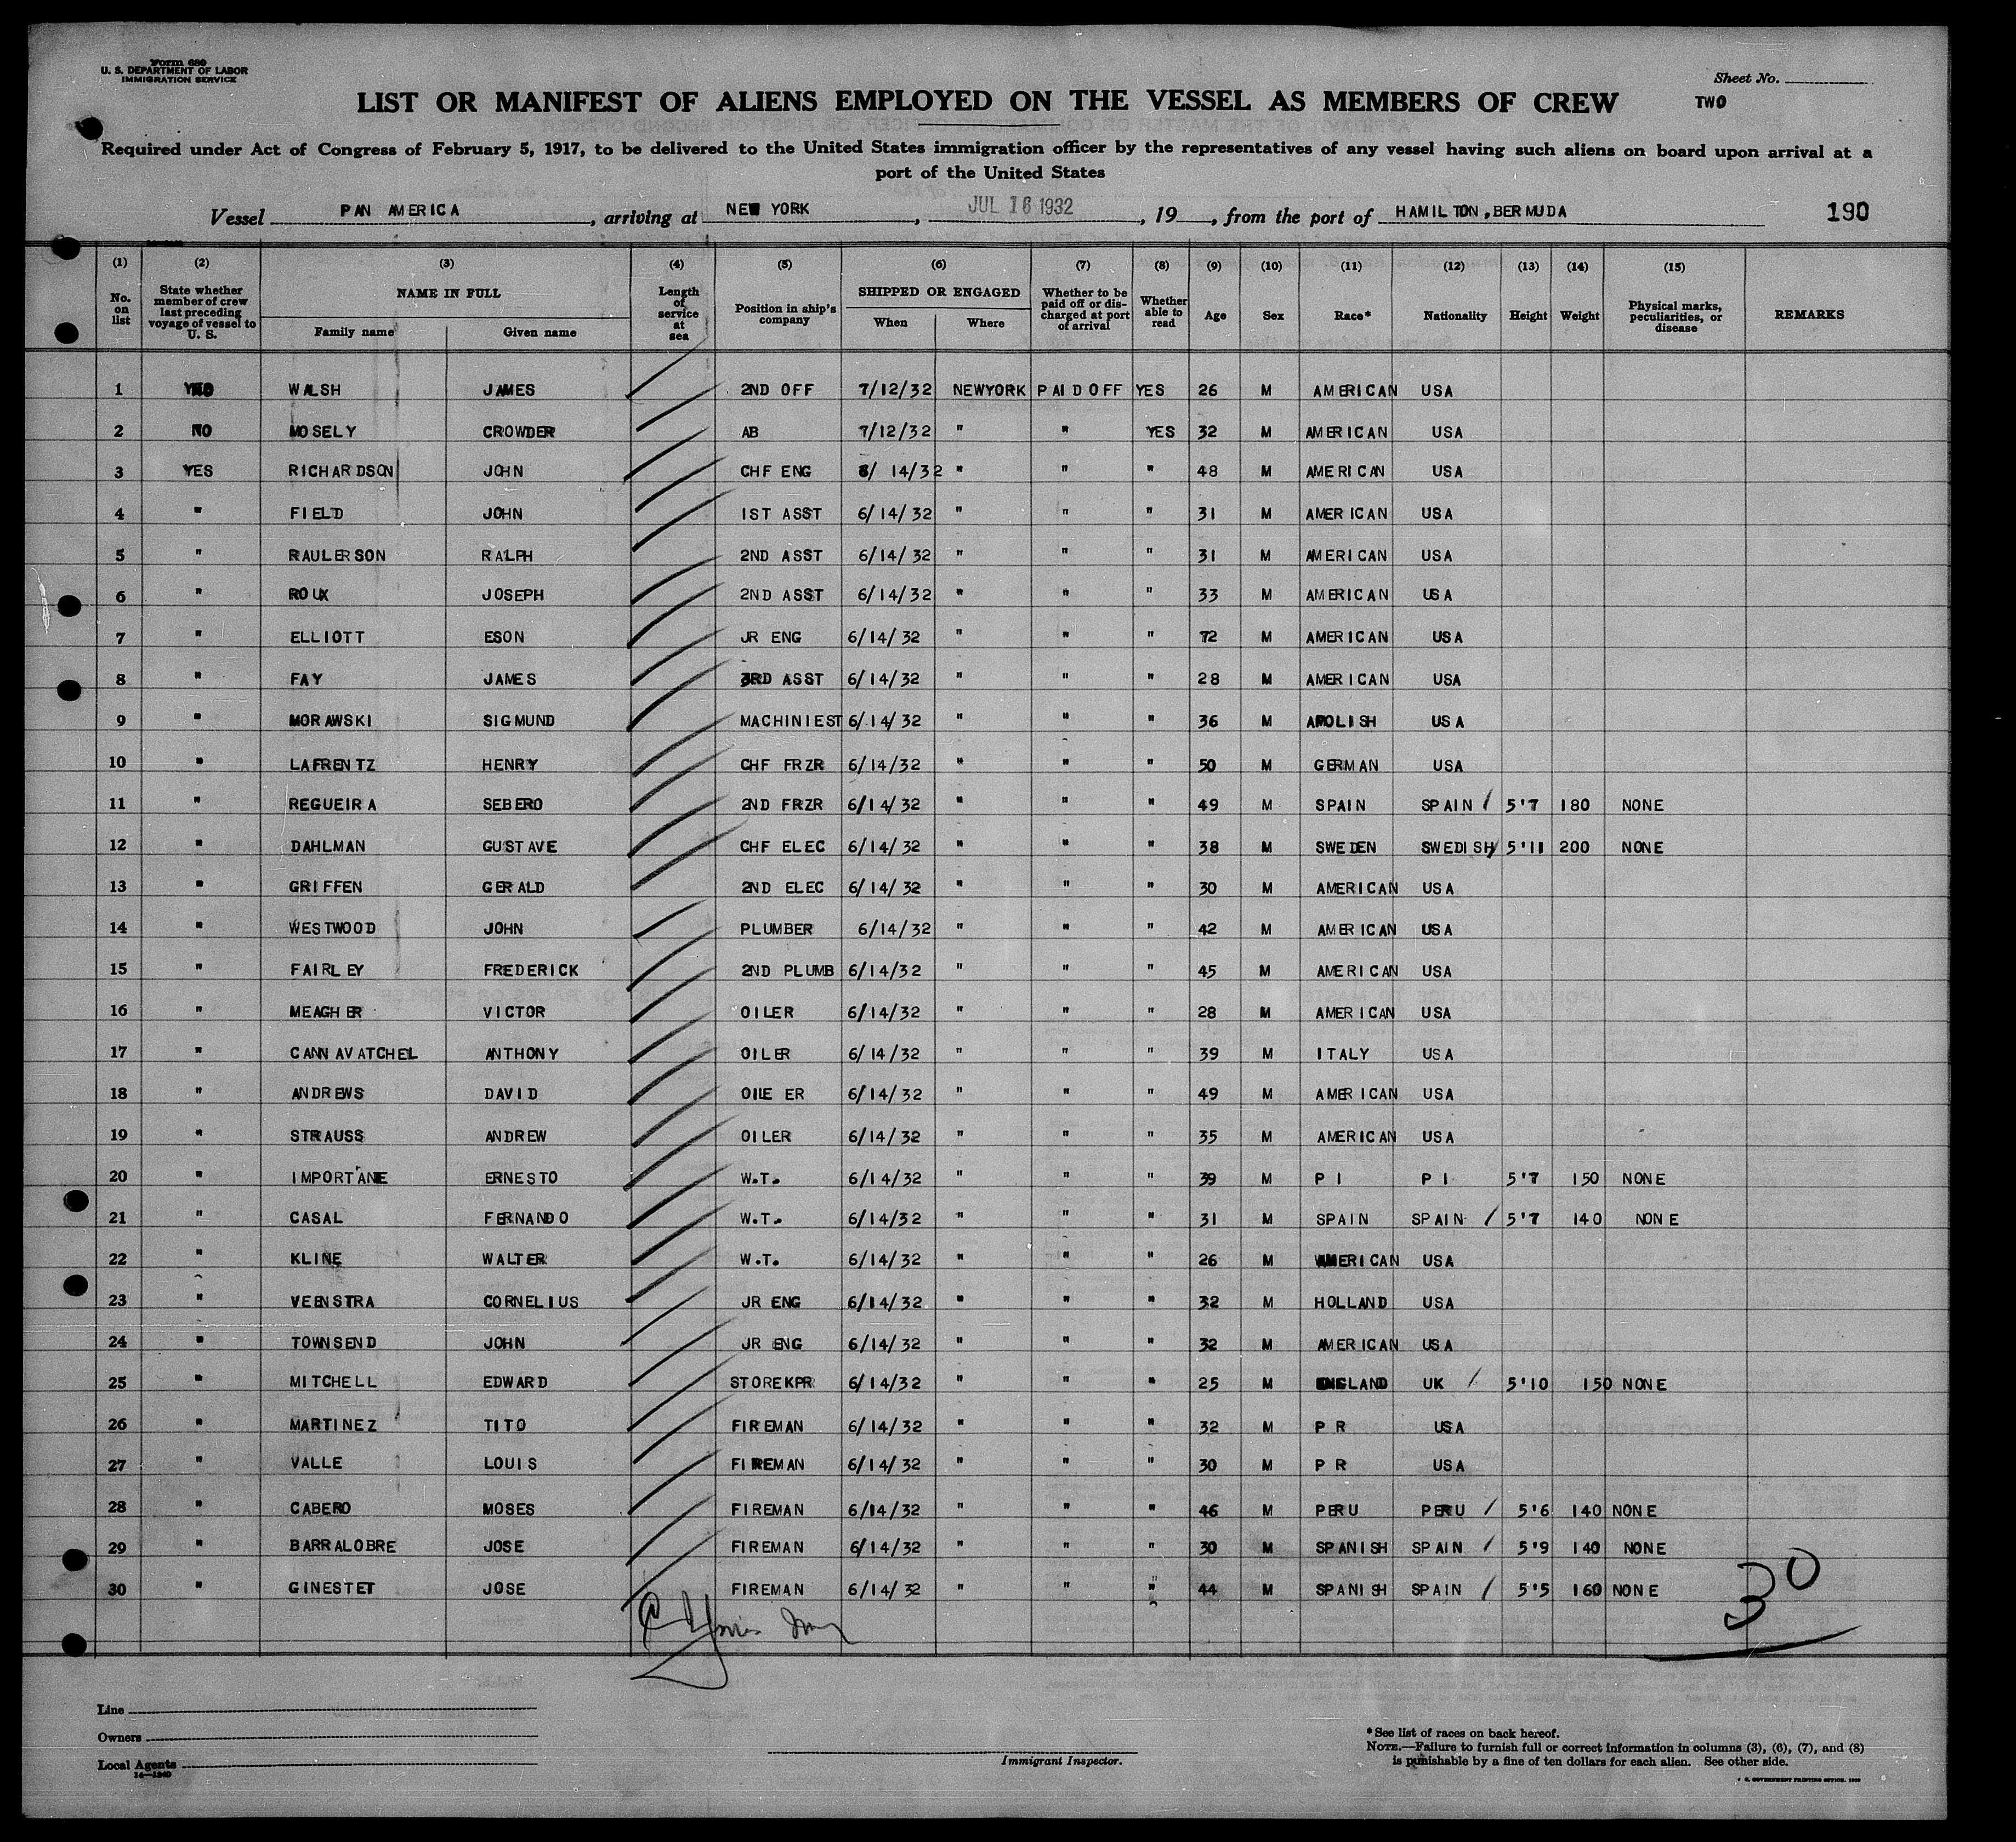 Form 680
U. S. DEPARTMENT OF LABOR
IMMIGRATION SERVICE
Sheet No.
TWO
LIST OR MANIFEST OF ALIENS EMPLOYED ON THE VESSEL AS MEMBERS OF CREW
Required under Act of Congress of February 5, 1917, to be delivered to the United States immigration officer by the representatives of any vessel having such aliens on board upon arrival at a
port of the United States
Vessel PAN AMERICA, arriving at NEW YORK, JUL 16 1932, 19, from the port of HAMILTON, BERMUDA 190
(1) (2) (3) (4) (5) (6) (7) (8) (9) (10) (11) (12) (13) (14) (15)
No. on list State whether member of crew last preceding voyage of vessel to U. S. NAME IN FULL Family name Given name Length of service at sea Position in ship's company SHIPPED OR ENGAGED When Where Whether to be paid off or discharged at port of arrival Whether able to read Age Sex Race* Nationality Height Weight Physical marks, peculiarities, or disease REMARKS
1 WALSH JAMES 2ND OFF 7/12/32 NEWYORK PAID OFF YES 26 M AMERICAN USA
2 NO MOSELY CROWDER AB 7/12/32 " " YES 32 M AMERICAN USA
3 YES RICHARDSON JOHN CHF ENG 6/ 14/32 " " " 48 M AMERICAN USA
4 " FIELD JOHN 1ST ASST 6/14/32 " " " 31 M AMERICAN USA
5 " RAULERSON RALPH 2ND ASST 6/14/32 " " " 31 M AMERICAN USA
6 " ROUX JOSEPH 2ND ASST 6/14/32 " " " 33 M AMERICAN USA
7 " ELLIOTT ESON JR ENG 6/14/32 " " " 72 M AMERICAN USA
8 " FAY JAMES 3RD ASST 6/14/32 " " " 28 M AMERICAN USA
9 " MORAWSKI SIGMUND MACHINIEST 6/14/32 " " " 36 M POLISH USA
10 " LAFRENTZ HENRY CHF FRZR 6/14/32 " " " 50 M GERMAN USA
11 " REGUEIRA SEBERO 2ND FRZR 6/14/32 " " " 49 M SPAIN SPAIN / 5'7 180 NONE
12 " DAHLMAN GUSTAVE CHF ELEC 6/14/32 " " " 38 M SWEDEN SWEDISH / 5'11 200 NONE
13 " GRIFFEN GERALD 2ND ELEC 6/14/32 " " " 30 M AMERICAN USA
14 " WESTWOOD JOHN PLUMBER 6/14/32 " " " 42 M AMERICAN USA
15 " FAIRLEY FREDERICK 2ND PLUMB 6/14/32 " " " 45 M AMERICAN USA
16 " MEAGHER VICTOR OILER 6/14/32 " " " 28 M AMERICAN USA
17 " CANNAVATCHEL ANTHONY OILER 6/14/32 " " " 39 M ITALY USA
18 " ANDREWS DAVID OILE ER 6/14/32 " " " 49 M AMERICAN USA
19 " STRAUSS ANDREW OILER 6/14/32 " " " 35 M AMERICAN USA
20 " IMPORTANE ERNESTO W.T. 6/14/32 " " " 39 M P I P I 5'7 150 NONE
21 " CASAL FERNANDO W.T. 6/14/32 " " " 31 M SPAIN SPAIN / 5'7 140 NONE
22 " KLINE WALTER W.T. 6/14/32 " " " 26 M AMERICAN USA
23 " VEENSTRA CORNELIUS JR ENG 6/14/32 " " " 32 M HOLLAND USA
24 " TOWNSEND JOHN JR ENG 6/14/32 " " " 32 M AMERICAN USA
25 " MITCHELL EDWARD STOREKPR 6/14/32 " " " 25 M ENGLAND UK / 5'10 150 NONE
26 " MARTINEZ TITO FIREMAN 6/14/32 " " " 32 M P R USA
27 " VALLE LOUIS FIREMAN 6/14/32 " " " 30 M P R USA
28 " CABERO MOSES FIREMAN 6/14/32 " " " 46 M PERU PERU / 5'6 140 NONE
29 " BARRALOBRE JOSE FIREMAN 6/14/32 " " " 30 M SPANISH SPAIN / 5'9 140 NONE
30 " GINESTET JOSE FIREMAN 6/14/32 " " " 44 M SPANISH SPAIN / 5'5 160 NONE
30
Line
Owners
Local Agents
14—1240
Immigrant Inspector.
*See list of races on back hereof.
NOTE.—Failure to furnish full or correct information in columns (3), (6), (7), and (8)
is punishable by a fine of ten dollars for each alien. See other side.
U. S. GOVERNMENT PRINTING OFFICE: 1930